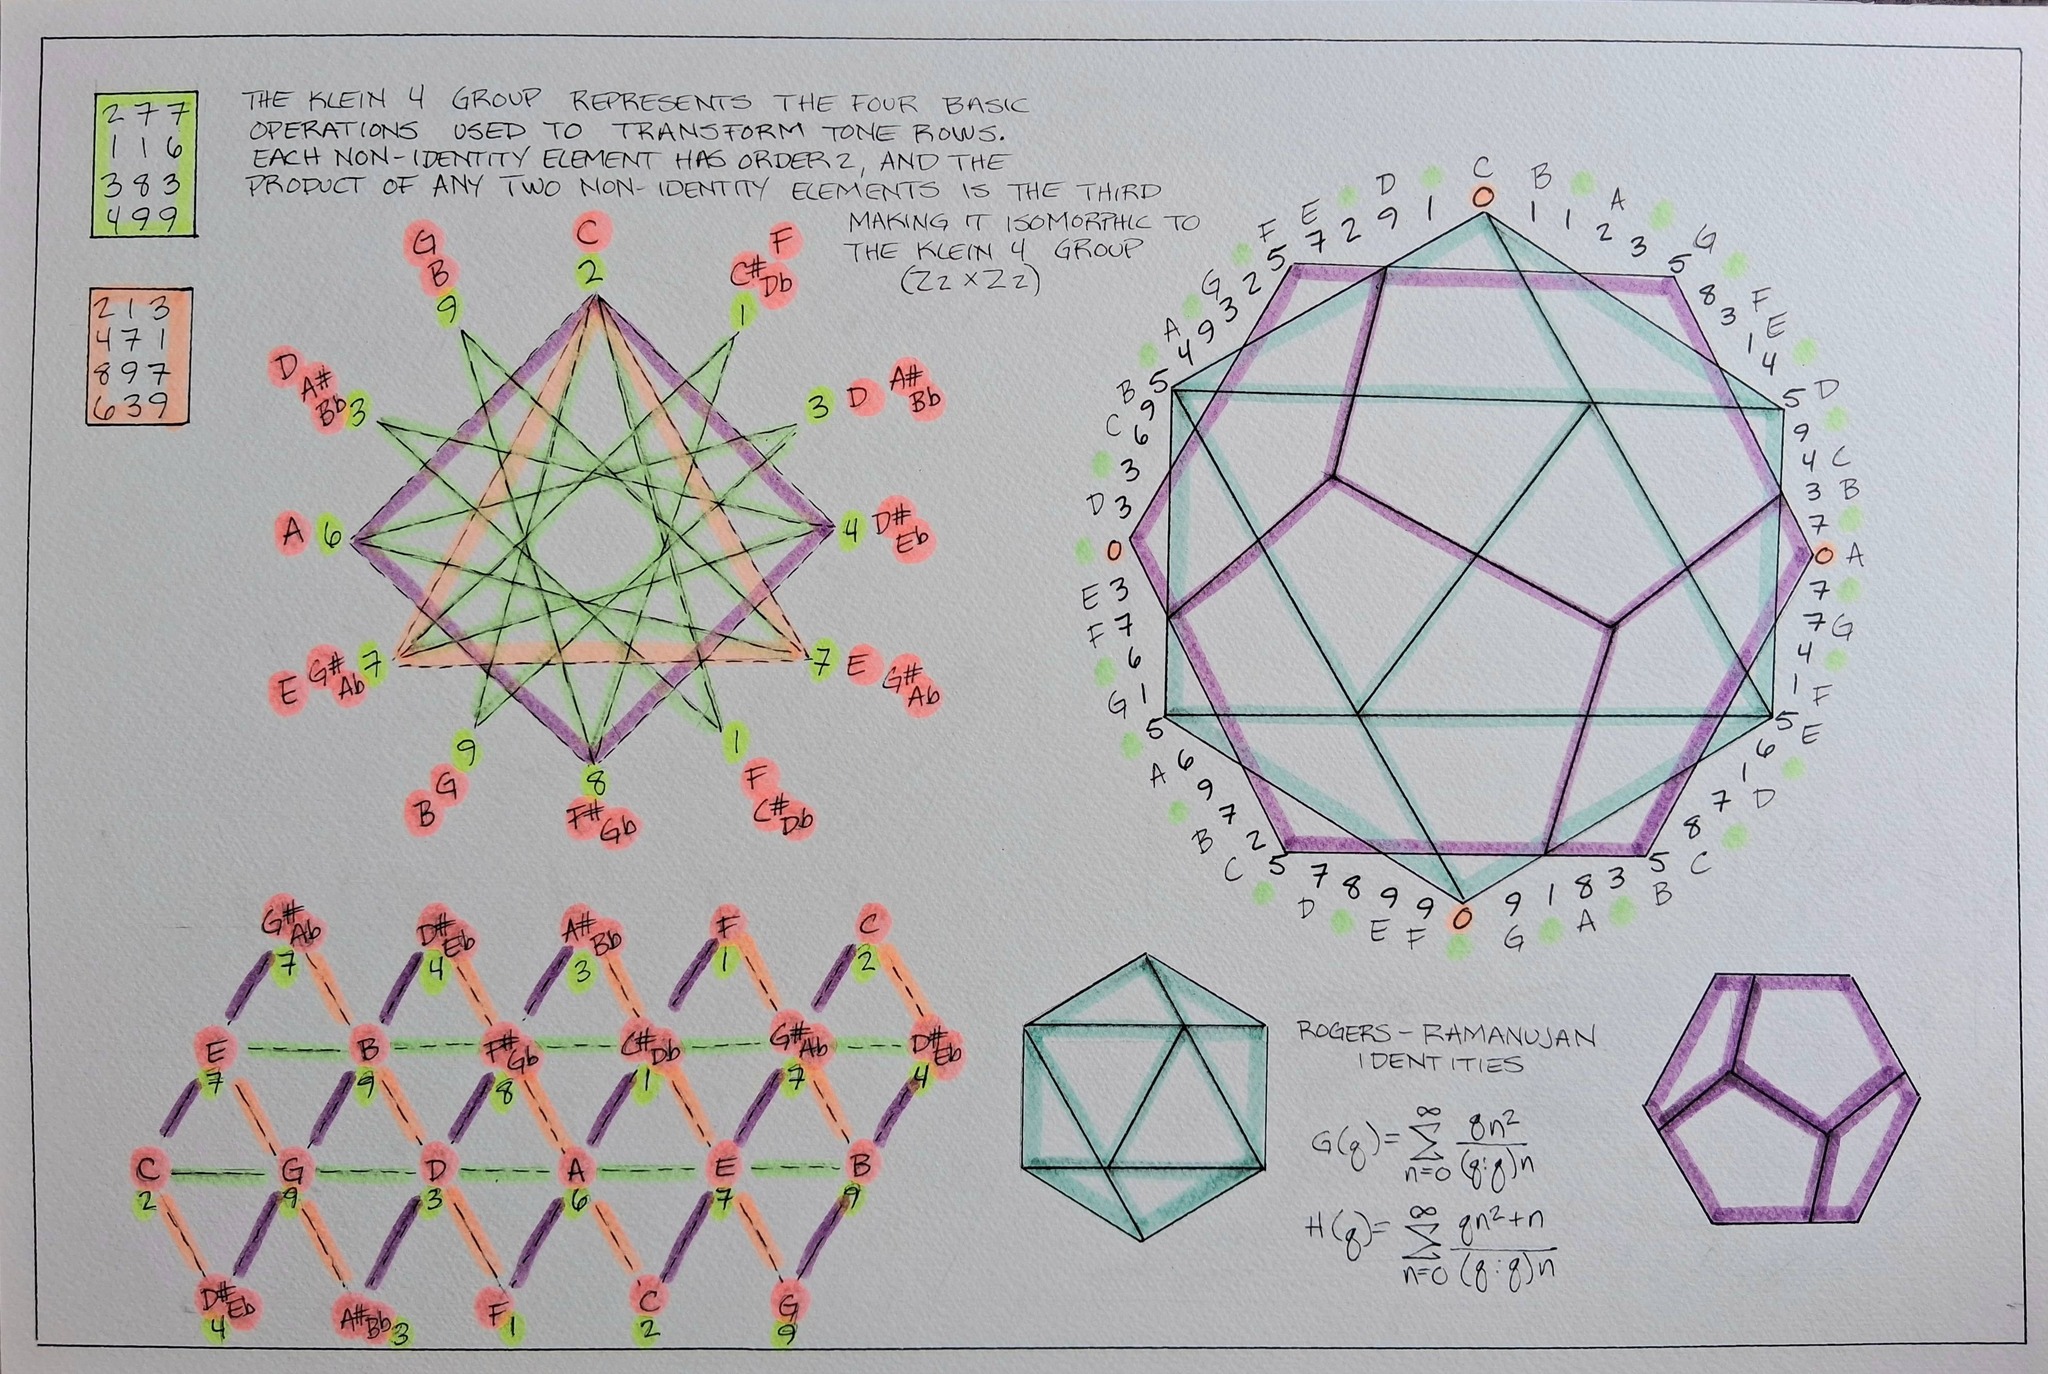 2 7 7
1 1 6
3 8 3
4 9 9
2 1 3
4 7 1
8 9 7
6 3 9
THE KLEIN 4 GROUP REPRESENTS THE FOUR BASIC
OPERATIONS USED TO TRANSFORM TONE ROWS.
EACH NON-IDENTITY ELEMENT HAS ORDER 2, AND THE
PRODUCT OF ANY TWO NON-IDENTITY ELEMENTS IS THE THIRD
MAKING IT ISOMORPHIC TO
THE KLEIN 4 GROUP
(Z2 x Z2)
C
2
F
C# Db
1
3 D A# Bb
4 D# Eb
7 E G# Ab
1
F
C# Db
8
F# Gb
9
G
B
E G# Ab 7
A 6
D A# Bb 3
G
B
9
C B A G F E D C B A G F E D C B A G F E D C B A G F E D C B A G F E D
0 1 1 2 3 5 8 3 1 4 5 9 4 3 7 0 7 7 4 1 5 6 1 7 8 5 3 8 1 9 0 9 9 8 7 5 2 7 9 6 5 1 6 7 3 0 3 3 6 9 5 4 9 3 2 5 7 2 9 1
G# Ab D# Eb A# Bb F C
7 4 3 1 2
E B F# Gb C# Db G# Ab D# Eb
7 9 8 1 7 4
C G D A E B
2 9 3 6 7 9
D# Eb A# Bb F C G
4 3 1 2 9
ROGERS-RAMANUJAN
IDENTITIES
G(q)= ∞ Σ n=0 qn2 (q:q)n
H(q)= ∞ Σ n=0 qn2+n (q:q)n